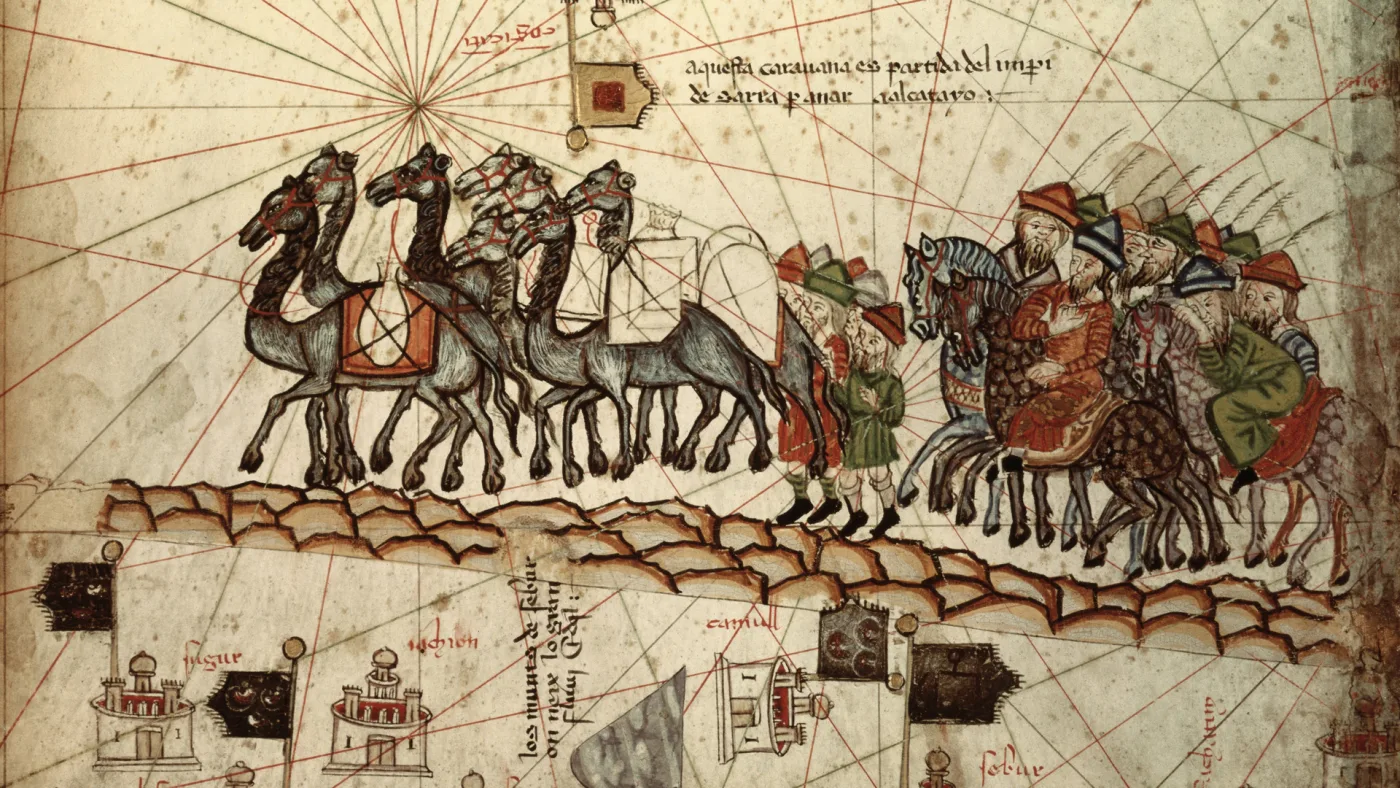 aquesta carauana es partida del imperi
de sarra per anar a alcatayo :
sugur
iachion
los munts de sebur
on neix lo gran
flum Edil :
camull
sebur